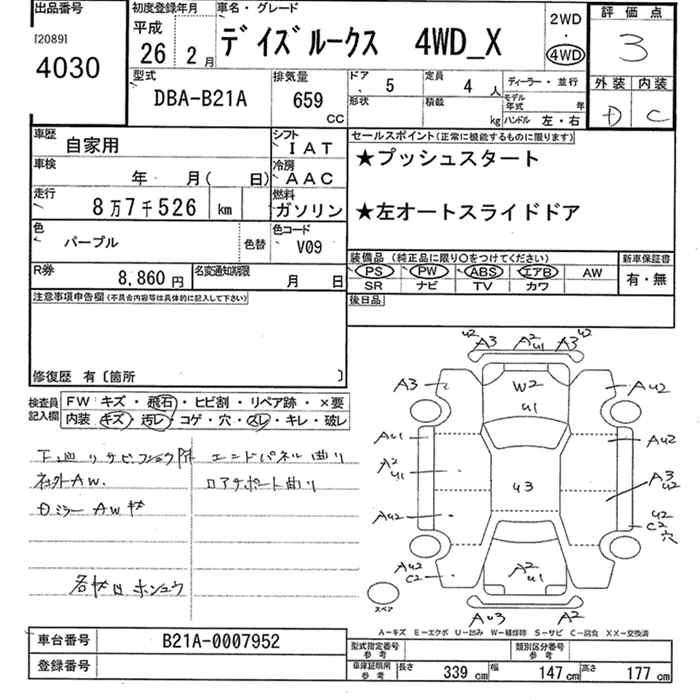 出品番号
[2089]
4030
初度登録年月
平成
26 2 月
車名・グレード
デイズルークス 4WD_X
2WD
・
4WD
評価点
3
外装 内装
D C
型式
DBA-B21A
排気量
659
CC
ドア
5
定員
4 人
形状
積載
kg
ディーラー・並行
モデル年式 年
ハンドル 左・右
車歴
自家用
シフト
IAT
車検
年 月( 日)
冷房
AAC
走行
8万7千526 km
燃料
ガソリン
色
パープル
色替
色コード
V09
R券
8,860 円
名変通知期限
月 日
セールスポイント(正常に機能するものに限ります)
★プッシュスタート
★左オートスライドドア
装備品 (純正品に限り〇をつけてください)
新車保証書
PS PW ABS エアB AW
SR ナビ TV カワ
有・無
後日品
注意事項申告欄(不具合内容等は具体的に記入して下さい)
修復歴 有〔箇所 〕
検査員記入欄
FW キズ・飛石・ヒビ割・リペア跡・×要
内装・キズ・汚レ・コゲ・穴・スレ・キレ・破レ
エンドパネル曲り
ロアサポート曲り
A3 u2
A2 u1
A3 u2
A3
W2
u1
Au2
Au1
A2 u1
Au2
u3
Au2
A3 u2
u2 C2 穴
Au2 C2
A2 u1
Au3
A2
スペア
A-キズ E-エクボ U-凹み W-補修跡 S-サビ C-腐食 XX-交換済
車台番号
B21A-0007952
登録番号
型式指定番号 参考
類別区分番号 参考
車庫証明用 参考
長さ 339 cm 幅 147 cm 高さ 177 cm